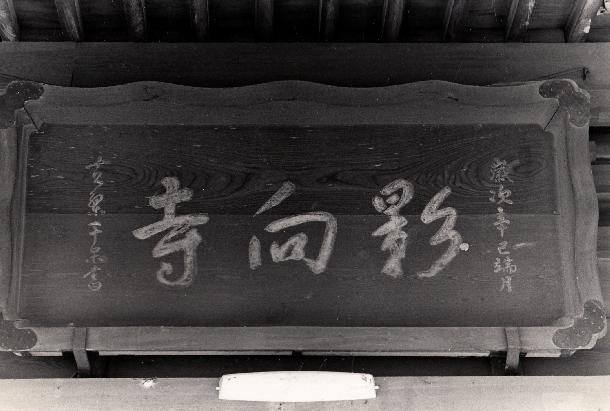 歳次辛巳端月
影向寺